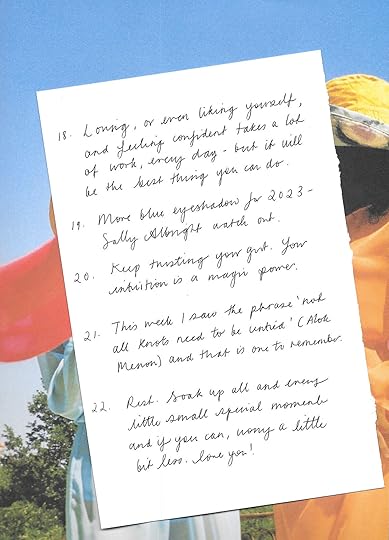 18. Loving, or even liking yourself,
and feeling confident takes a lot
of work, every day - but it will
be the best thing you can do.
19. More blue eyeshadow for 2023 -
Sally Albright watch out.
20. Keep trusting your gut. Your
intuition is a magic power.
21. This week I saw the phrase 'not
all knots need to be untied' (Alok
Menon) and that is one to remember.
22. Rest. Soak up all and every
little small special moment
and if you can, worry a little
bit less. Love you!